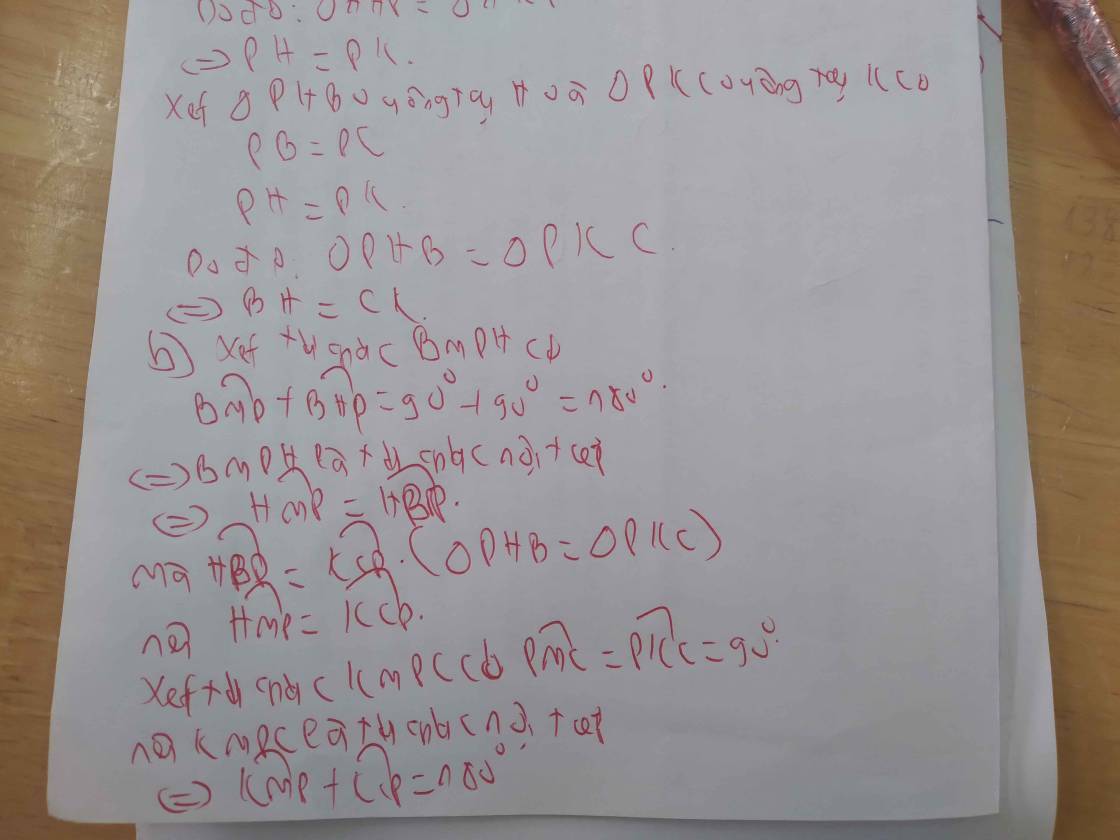 Do đó: ΔAHP = ΔAKP
⇔ PH = PK.
Xét Δ PHB vuông tại H và Δ PKC vuông tại K có
PB = PC
PH = PK.
Do đó: ΔPHB = ΔPKC.
⇔ BH = CK.
b) Xét tứ giác BMPH có
BMP + BHP = 90° + 90° = 180°.
⇔ BMPH là tứ giác nội tiếp
⇔ HMP = HBP.
mà HBP = KCP. (ΔPHB = ΔPKC)
nên HMP = KCP.
Xét tứ giác KMPC có PMC = PKC = 90°.
nên KMPC là tứ giác nội tiếp
⇔ KMP + KCP = 180°